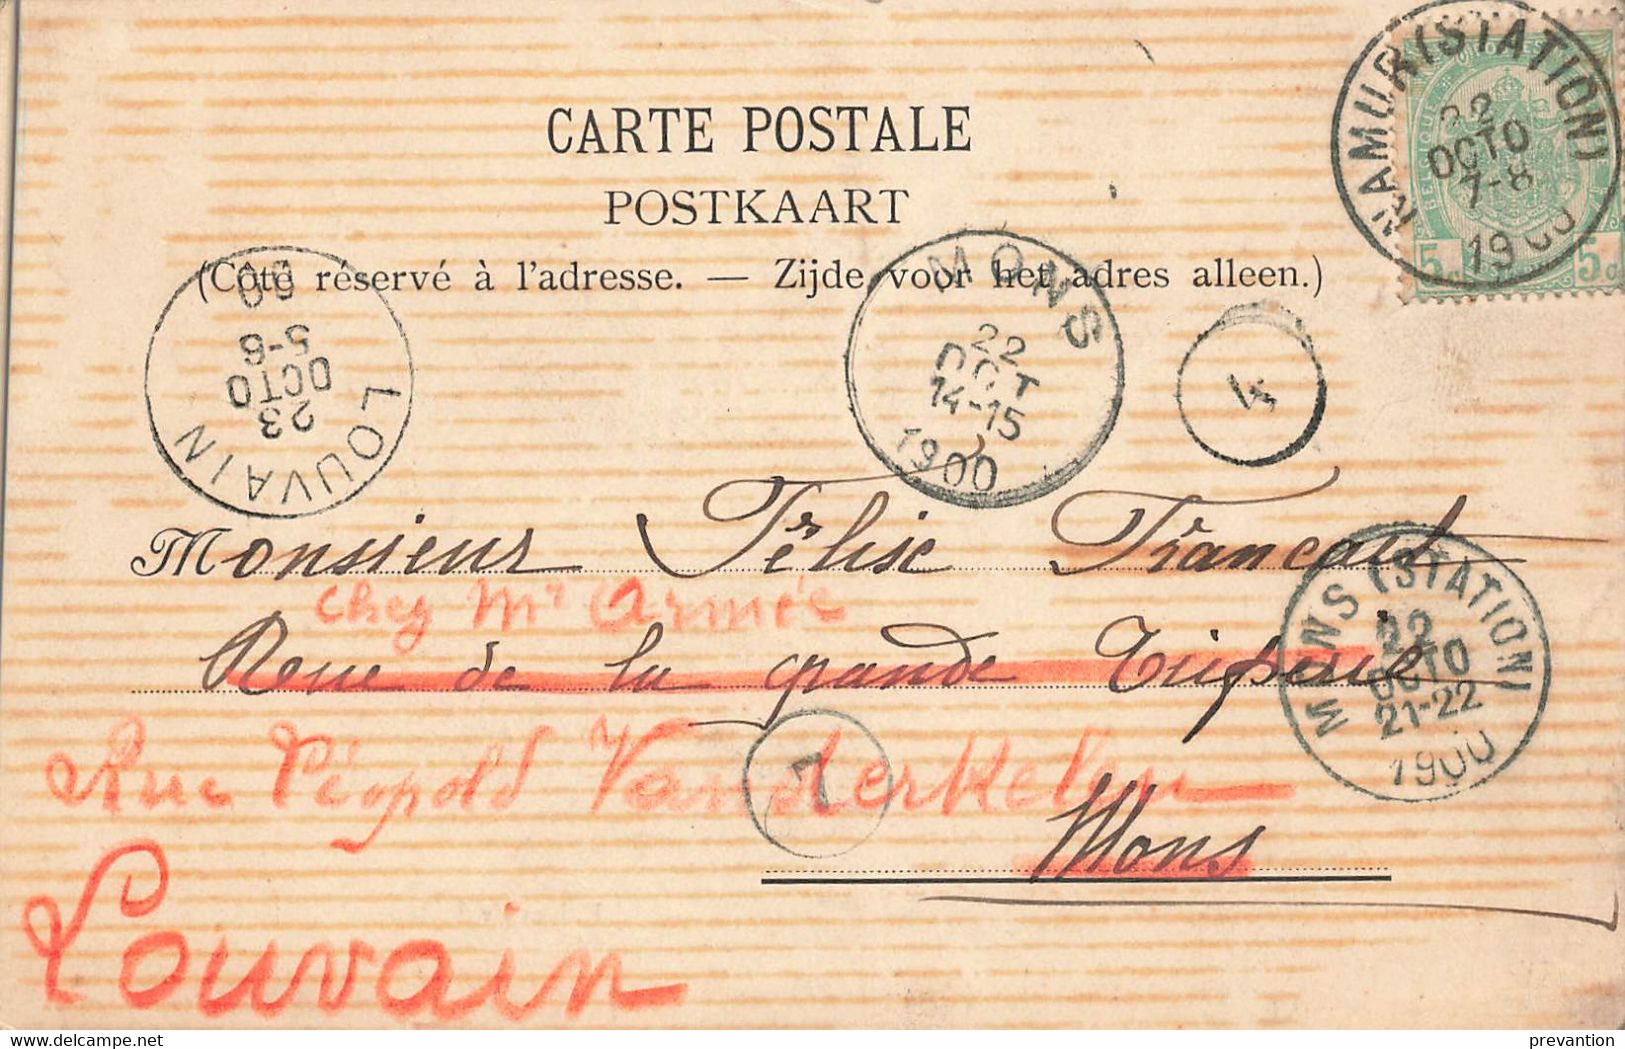 CARTE POSTALE
POSTKAART
(Côté réservé à l'adresse. — Zijde voor het adres alleen.)
NAMUR (STATION)
22
OCTO
7-8
1900
BELGIQUE
5c 5c
LOUVAIN
23
OCTO
5-6
00
MONS
22
OCT
14-15
1900
4
Monsieur Félix Francart
chez Mr Armée
Rue de la grande Triperie
MONS (STATION)
22
OCTO
21-22
1900
Rue Léopold Vanderkelen
Mons
Louvain
prevantion